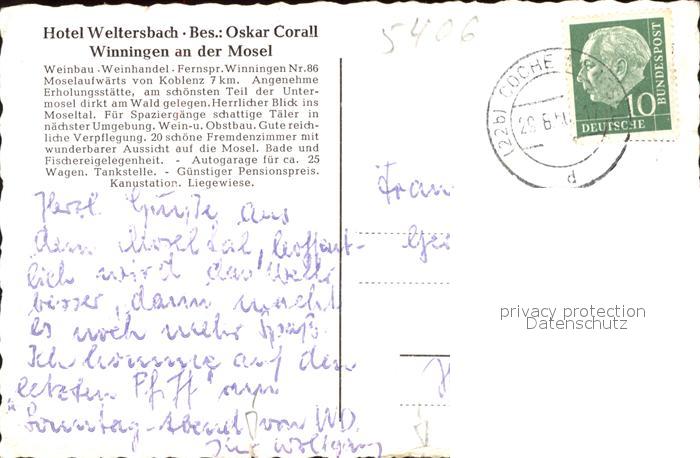 Hotel Weltersbach · Bes.: Oskar Corall
Winningen an der Mosel
Weinbau - Weinhandel - Fernspr. Winningen Nr. 86
Moselaufwärts von Koblenz 7 km. Angenehme
Erholungsstätte, am schönsten Teil der Unter-
mosel dirkt am Wald gelegen. Herrlicher Blick ins
Moseltal. Für Spaziergänge schattige Täler in
nächster Umgebung. Wein-u. Obstbau. Gute reich-
liche Verpflegung. 20 schöne Fremdenzimmer mit
wunderbarer Aussicht auf die Mosel. Bade und
Fischereigelegenheit. - Autogarage für ca. 25
Wagen. Tankstelle. - Günstiger Pensionspreis.
Kanustation. Liegewiese.
Herzl. Grüße aus
dem Moseltal, hoffent-
lich wird das Wetter
besser, dann macht
es noch mehr Spaß.
Ich komme auf den
letzten Pfiff am
Sonntag-Abend von
Wolfgang
5406
(22b) COCHE
10
DEUTSCHE
BUNDESPOST
Frau
privacy protection
Datenschutz